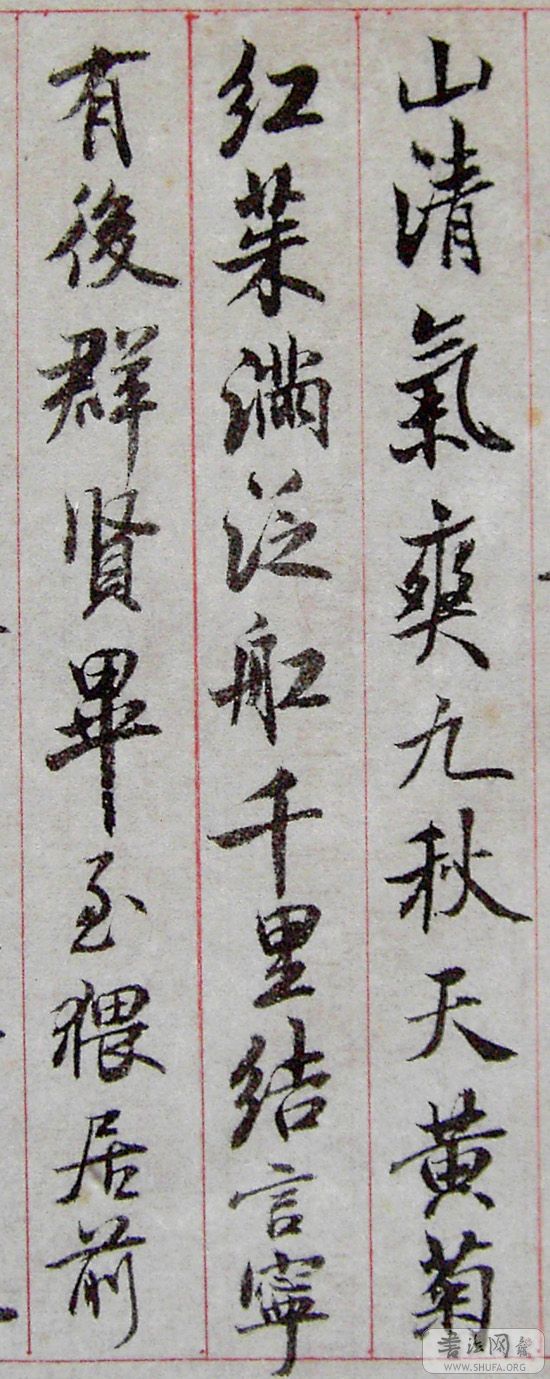 山清氣爽九秋天黄菊
红茱滿泛船千里結言寧
有後群賢畢至猥居前
书法网
WWW.SHUFA.ORG